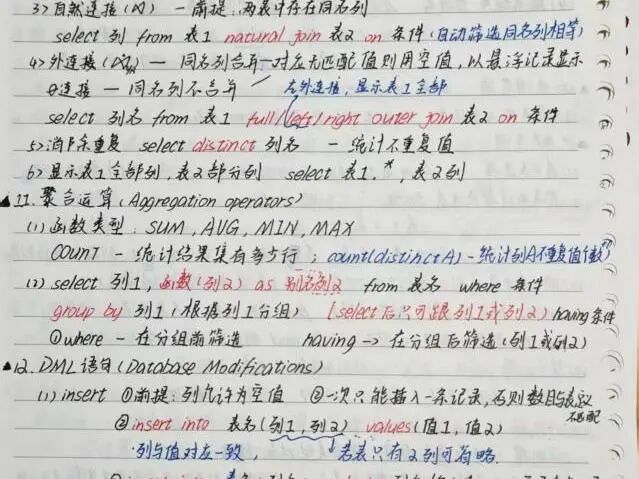 3> 自然连接(⋈) — 前提:两表中存在同名列
select 列 from 表1 natural join 表2 on 条件(自动筛选同名列相等)
4> 外连接(⟗) — 同名列合并 — 对应无匹配值则用空值,以悬浮记录显示
θ连接 — 同名列不合并 左外连接,显示表1全部
select 列名 from 表1 full/left/right outer join 表2 on 条件
5> 消除重复 select distinct 列名 — 统计不重复值
6> 显示表1全部列,表2部分列 select 表1.*,表2列
▲11. 聚合运算(Aggregation operators)
(1) 函数类型:SUM,AVG,MIN,MAX
COUNT - 统计结果集有多少行;count(distinct A) - 统计列A不重复值(个数)
(2) select 列1,函数(列2) as 别名列2 from 表名 where 条件
group by 列1(根据列1分组) [select后只可跟列1或列2] having 条件
①where - 在分组前筛选 having -> 在分组后筛选(列1或列2)
▲12. DML语句(Database Modifications)
(1) insert ①前提:列允许为空值 ②一次只能插入一条记录,否则数目与表定义
不匹配
②insert into 表名(列1,列2) values(值1,值2)
·列与值对应一致, 若表只有2列可省略.